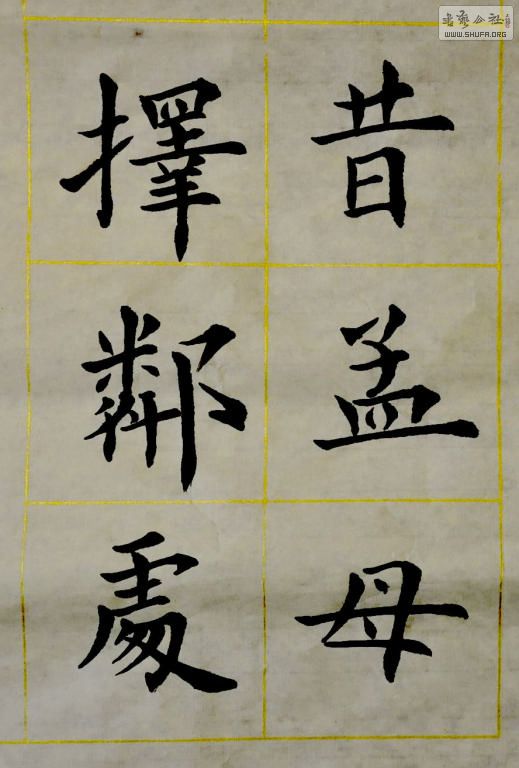 昔孟母
擇鄰處
書藝公社
WWW.SHUFA.ORG